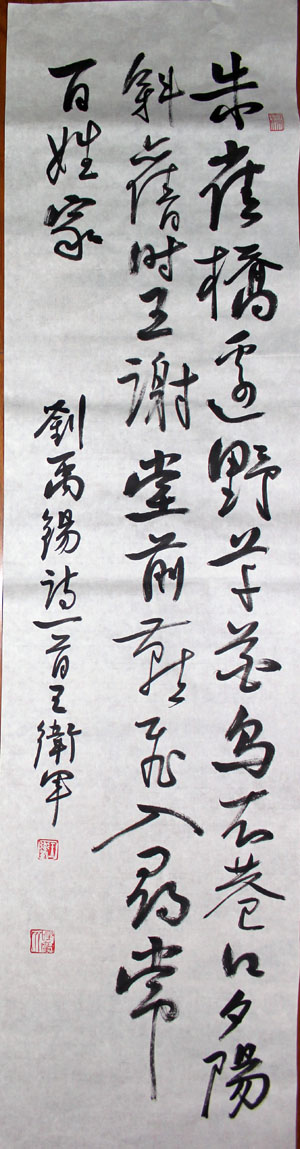 朱雀橋邊野草花烏衣巷口夕陽
斜舊时王謝堂前燕飛入尋常
百姓家
劉禹錫詩一首王衛軍